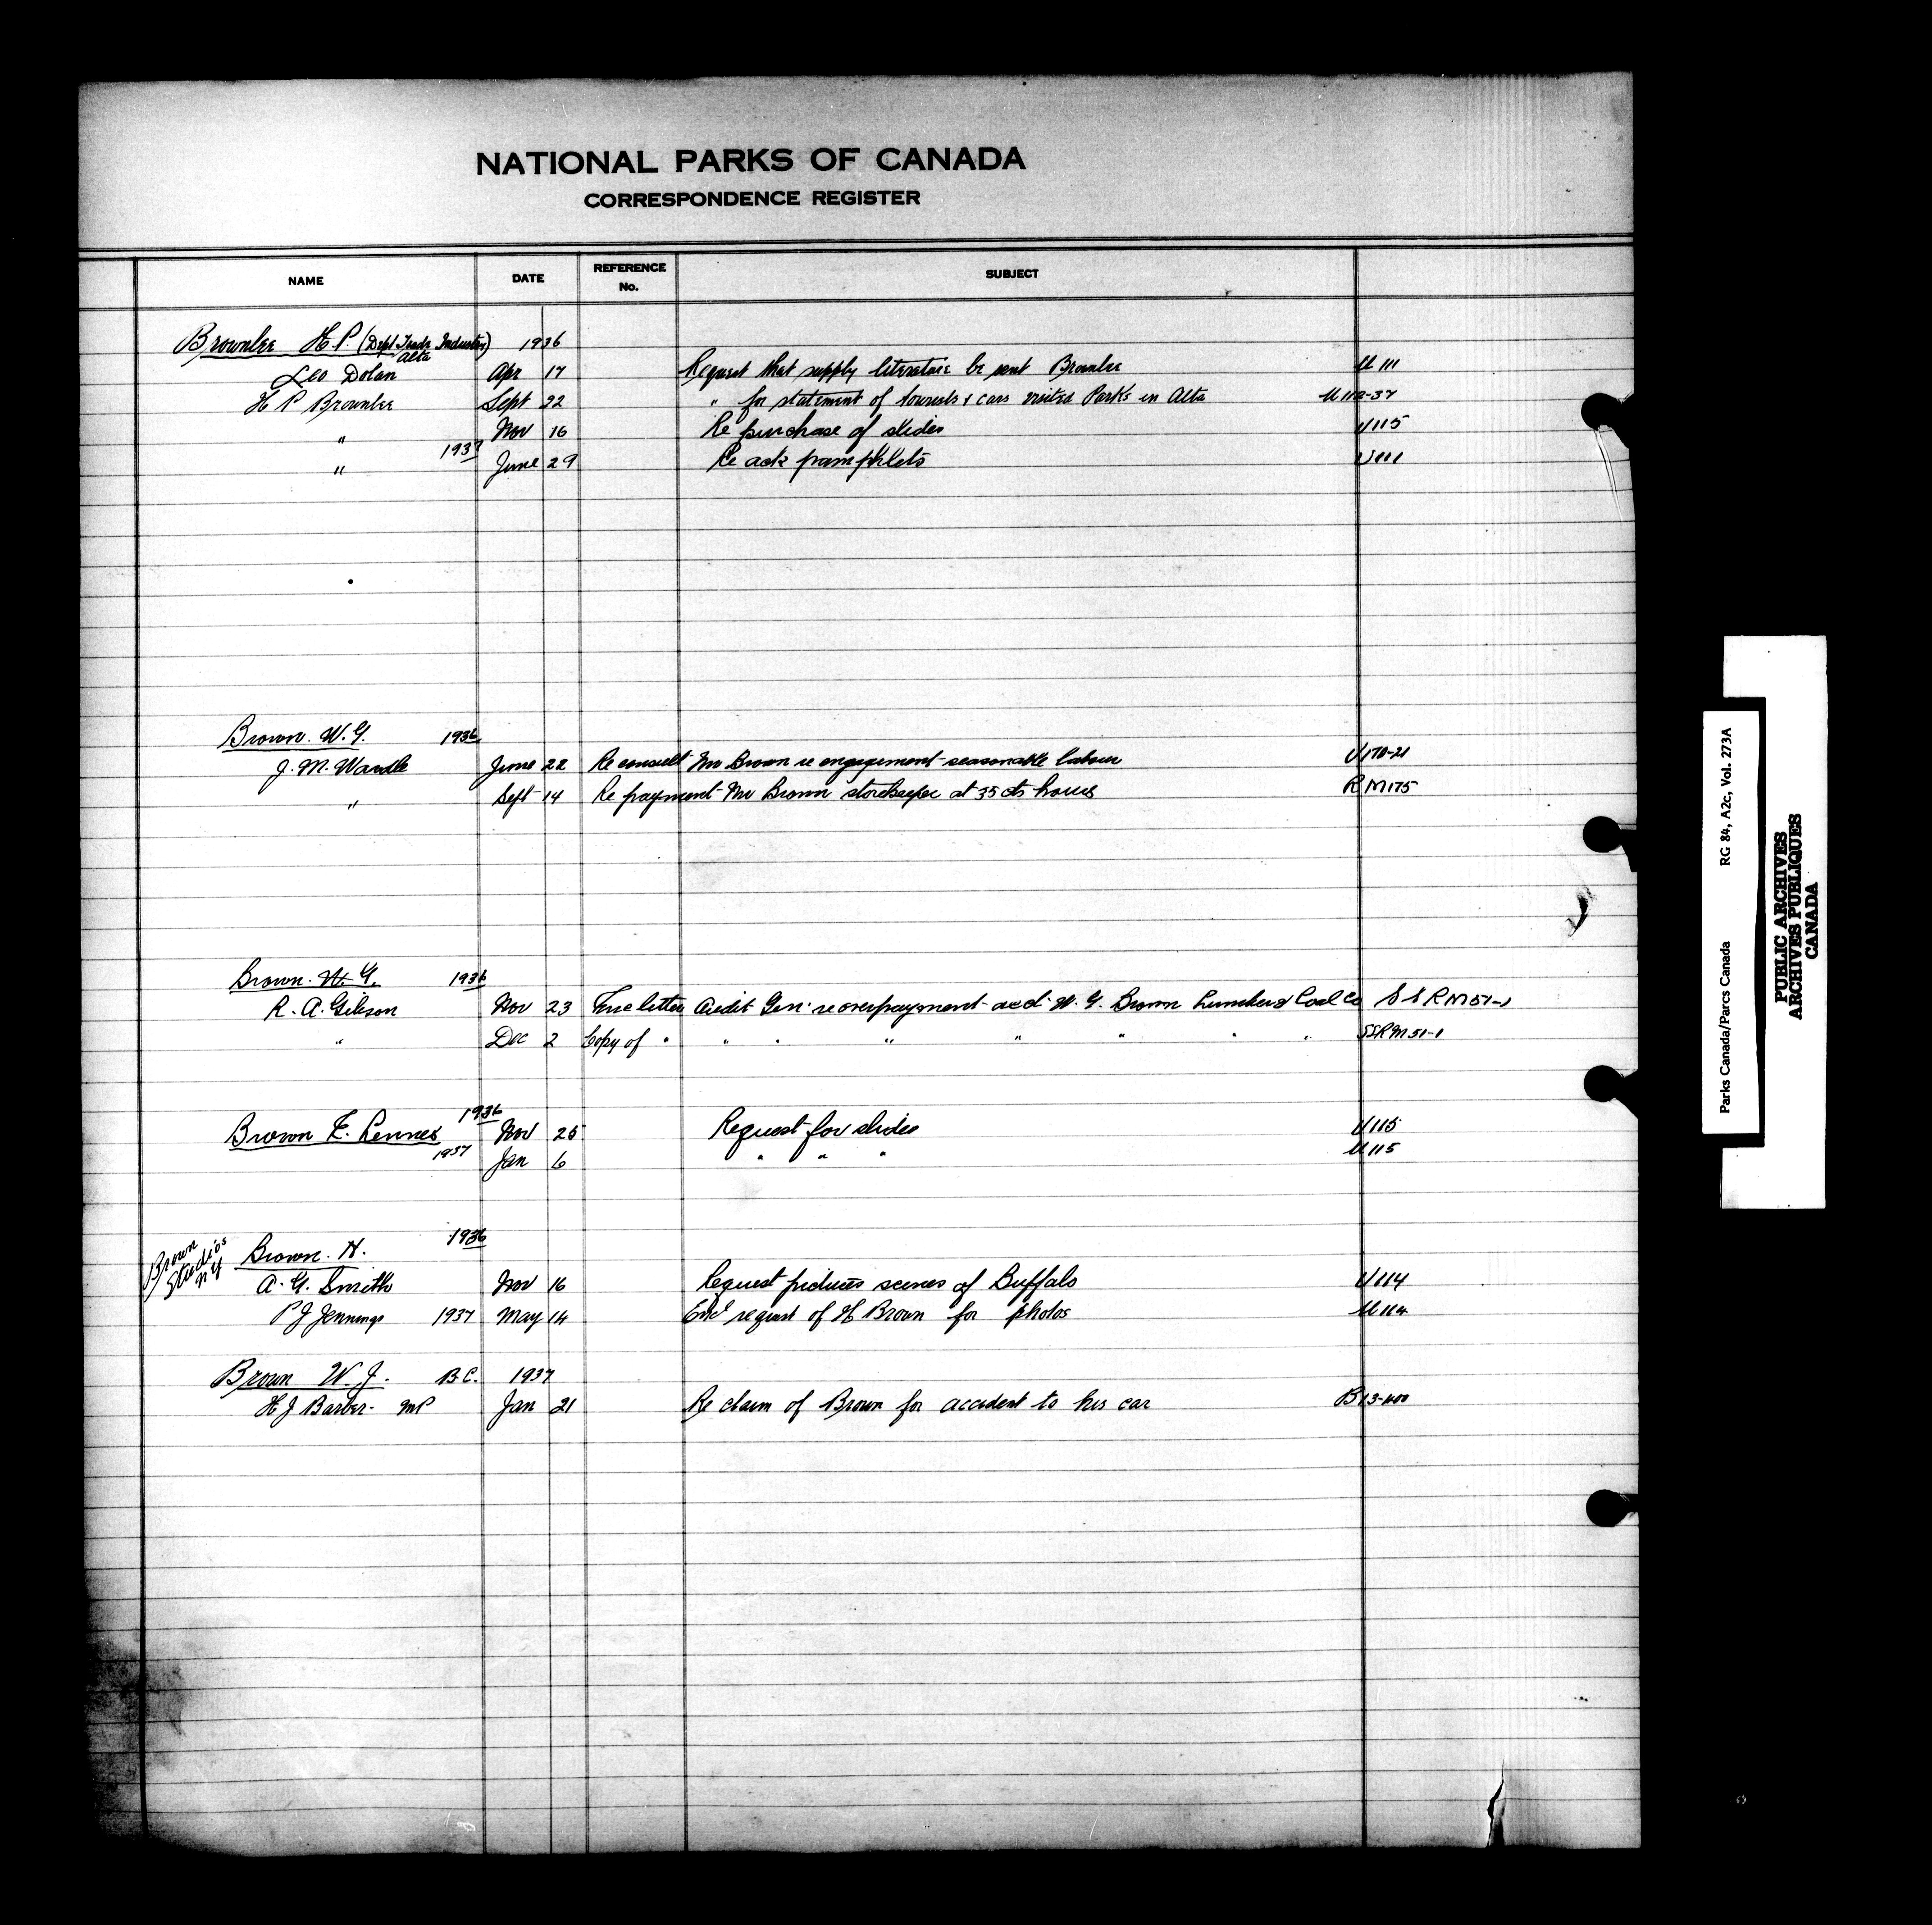 NATIONAL PARKS OF CANADA
CORRESPONDENCE REGISTER
NAME DATE REFERENCE No. SUBJECT
Brownlee H.P. (Dept Trade Industry) Alta 1936
Leo Dolan Apr 17 Request that supply literature be sent Brownlee U 111
H P Brownlee Sept 22 " for statement of tourists & cars visited Parks in Alta U112-37
" Nov 16 Re purchase of slides U115
" 1937 June 29 Re ack pamphlets U111
Brown. W.G. 1936
J. M. Wardle June 22 Re consult Mr Brown re engagement seasonable labour U170-21
" Sept 14 Re payment Mr Brown storekeeper at 35 cts hours RM175
Brown. W. G. 1936
R. A. Gibson Nov 23 letter Audit Gen. re overpayment acct. W. G. Brown Lumber & Coal Co SSRM51-1
" Dec 2 Copy of " " " " " " " " SSRM51-1
1936
Brown F. Lennes Nov 25 Request for slides U115
1937 Jan 6 " " " U115
Brown Studios NY
Brown. H. 1936
A. G. Smith Nov 16 Request pictures scenes of Buffalo U114
P J Jennings 1937 May 14 Encl request of H Brown for photos U114
Brown W. J. B.C. 1937
H J Barber- MP Jan 21 Re claim of Brown for accident to his car B13-400
Parks Canada/Parcs Canada RG 84, A2c, Vol. 273A
PUBLIC ARCHIVES
ARCHIVES PUBLIQUES
CANADA